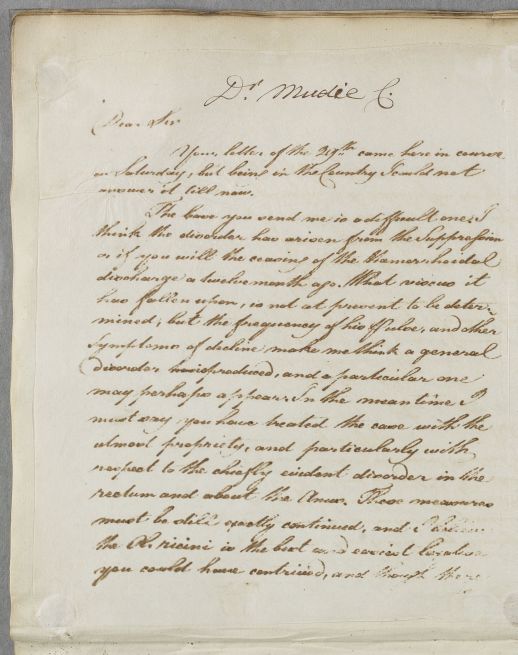 Dr. Mudie C.
Dear Sir
Your letter of the 29th came here in course
on Saturday, but being in the Country I could not
answer it till now.
The Case you send me is a difficult one; I
think the disorder has arisen from the Suppression
or if you will the ceasing of the Hamorrhoidal
discharge a twelvemonth ago. What viscus it
has fallen upon, is not at present to be deter-
mined; but the frequency of his Pulse, and other
Symptoms of decline make me think a general
disorder produced, and a particular one
may perhaps appear. In the mean time I
must say you have treated the case with the
utmost propriety, and particularly with
respect to the chiefly evident disorder in the
rectum and about the Anus. These measures
must be still exactly continued, and I believe
the Ol. ricini is the best and easiest Laxative
you could have contrived, and though there